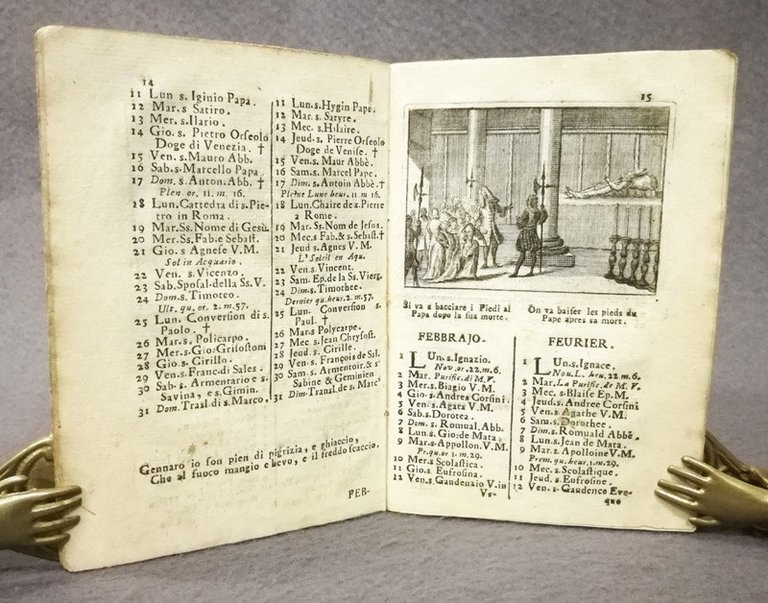 14
11 Lun s. Iginio Papa.
12 Mar. s Satiro.
13 Mer. s. Ilario.
14 Gio. s. Pietro Orseolo
Doge di Venezia. †
15 Ven. s. Mauro Abb.
16 Sab. s. Marcello Papa.
17 Dom. s. Anton. Abb. †
Plen or. 11. m 16.
18 Lun. Cattedia di s. Pie-
tro in Roma.
19 Mar. Ss. Nome di Gesù.
20 Mer. Ss. Fab. e Sebast.
21 Gio. s Agnese V. M.
Sol in Acquario.
22 Ven. s. Vicenzo.
23 Sab. Sposal. della Ss. V.
24 Dom. s. Timoteo.
Ult. qu. or. 2. m. 57.
25 Lun. Conversion di s.
Paolo. †
26 Mar. s. Policarpo.
27 Mer. s. Gio: Grisostomi
28 Gio. s. Cirillo.
29 Ven. s. Franc. di Sales.
30 Sab. s. Armentario e s.
Savina, e s. Gimin.
31 Dom. Trasl. di s. Marco.
11 Lun. s. Hygin Pape.
12 Mar. s. Satyre.
13 Mec. s. Hilaire.
14 Jeud. s. Pierre Orseolo
Doge de Venise. †
15 Ven. s. Maur Abbè.
16 Sam. s. Marcel Pape.
17 Dim. s. Antoin Abbè. †
Pleine Lune heur. 11 m 16.
18 Lun. Chaire de s. Pierre
a Rome.
19 Mar. Ss. Nom de Jesus.
20 Mec. s Fab. & s. Sebast. †
21 Jeud. s Agnes V. M.
L'Soleil en Aqu.
22 Ven. s. Vincent.
23 Sam. Ep. de la Ss. Vierg.
24 Dim. s. Timothee.
Dernier qu. heur. 2. m. 57.
25 Lun. Conversion s.
Paul. †
26 Mar. s Polycarpe.
27 Mec s. Jean Chrysost.
28 Jeud. s. Cirille.
29 Ven. s. François de Sal.
30 Sam. s. Armentoir. & s.
Sabine & Geminien
31 Dim. Transl. de s. Marc
Gennaro io son pien di pigrizia, e ghiaccio,
Che al fuoco mangio e bevo, e il freddo scaccio.
FEB-
15
Si va a bacciare i Piedi al
Papa dopo la sua morte.
On va baiser les pieds du
Pape apres sa mort.
FEBBRAJO.
1 LUn. s. Ignazio.
Nov. or. 22. m. 6.
2 Mar. Purific. di M. V.
3 Mer. s. Biagio V. M.
4 Gio. s. Andrea Corsini
5 Ven. s. Agata V. M.
6 Sab. s. Dorotea.
7 Dom. s. Romual. Abb.
8 Lun. s. Gio: de Mata.
9 Mar. s. Appollon. V. M.
Pr. qu. or. 1. m. 29.
10 Mer. s Scolastica.
11 Gio. s Eufrosina.
12 Ven. s. Gaudenzio V. in
Ve-
FEURIER.
1 LUn. s. Ignace.
Nou. L. heu. 22 m. 6.
2 Mar. La Purific. de M. V.
3 Mec. s Blaise Ep. M.
4 Jeud. s. Andree Corsini
5 Ven. s. Agathe V. M.
6 Sam. s. Dorothee.
7 Dim. s. Romuald Abbè.
8 Lun. s. Jean de Mata.
9 Mar. s. Apolloine V. M.
Prem. qu. heur. 1. m. 29.
10 Mec. s. Scolastique.
11 Jeud. s. Eufrosine.
12 Ven. s. Gaudence Eve-
que